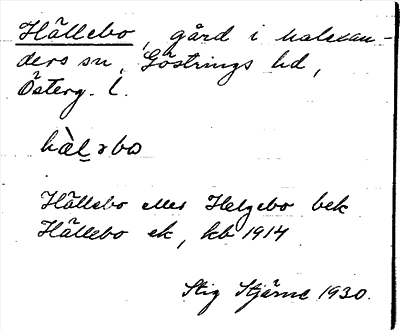 Hällebo, gård i Malexan-
ders sn, Göstrings hd,
Österg. l.
hàləbo
Hällebo eller Helgebo bek
Hällebo ek, kb 1914
Stig Stjärne 1930.